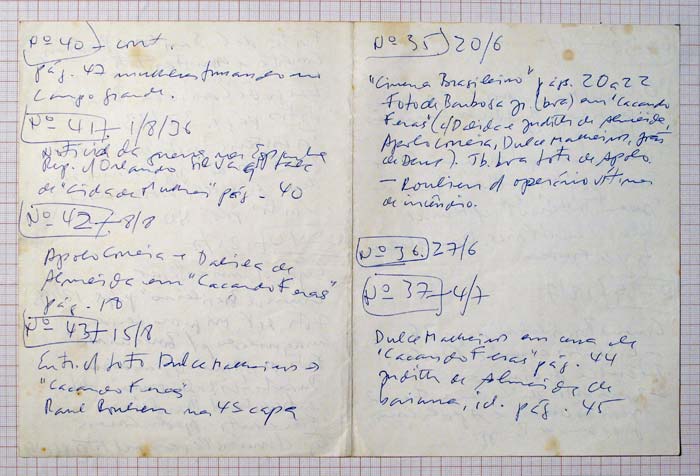 Nº 40 – cont.
pág. 47 mulheres fumando no
Campo grande.
Nº 41 – 1/8/36
Noticia da guerra na Espanha
Rep. d'Orlando Silva
de "Cidade Mulher" pág. 40
Nº 42 – 8/8
Apolo Correia e Dalila de
Almeida em "Caçando Feras"
pág. 18
Nº 43 – 15/8
Entr. c/ foto Dulce Malheiros →
"Caçando Feras"
Raul Roulien na 4ª capa
Nº 35 20/6
"Cinema Brasileiro" págs. 20 a 22
Foto de Barbosa Jr. (boa) em "Caçando
Feras" (c/ Dalila e Judith de Almeida,
Apolo Correia, Dulce Malheiros, João
de Deus). Tb. boa foto de Apolo
– Roulien d operário vítima
de incêndio.
Nº 36. 27/6
Nº 37 – 4/7
Dulce Malheiros em cena de
"Caçando Feras" pág. 44
Judith de Almeida de
baiana, id. pág. 45